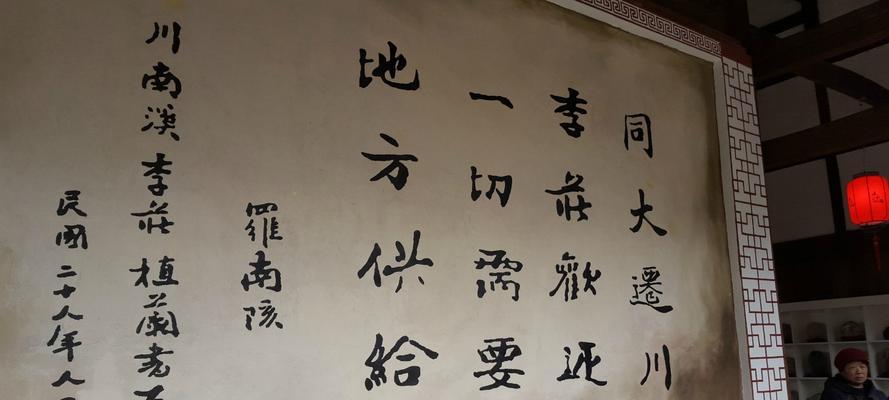 同大遷川
李莊歡迎
一切需要
地方供給
羅南陔
川南溪李莊植蘭書
民國二十八年八